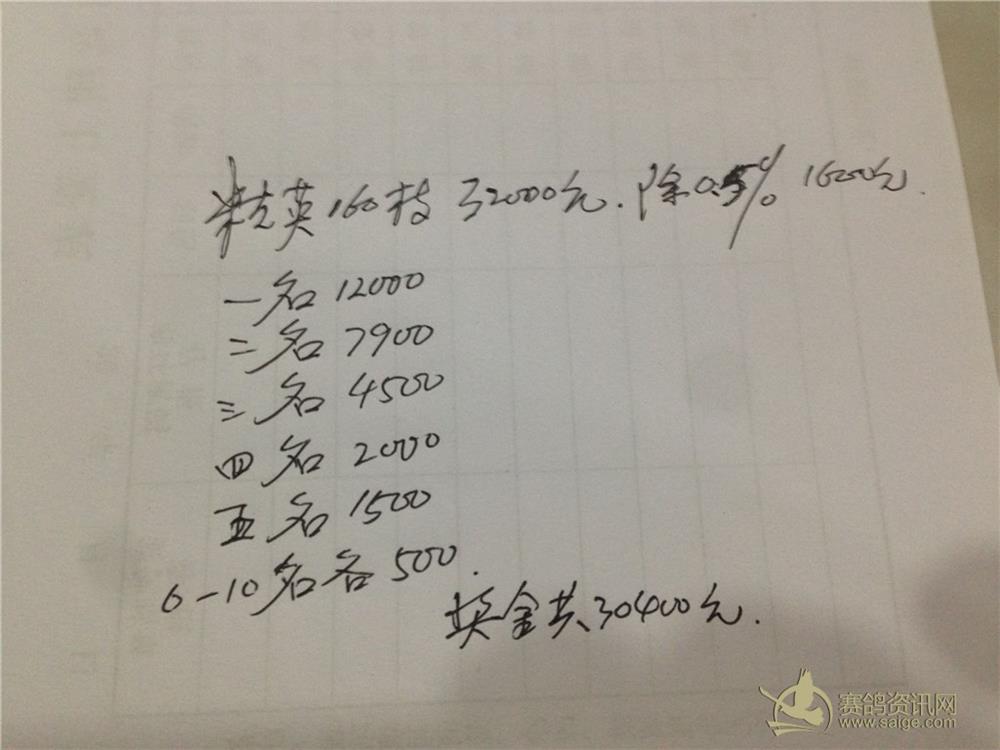 精英160枝32000元.除0.5%1600元.
一名12000
二名7900
三名4500
四名2000
五名1500
6-10名各500.
奖金共30400元.
赛鸽资讯网
www.saige.com